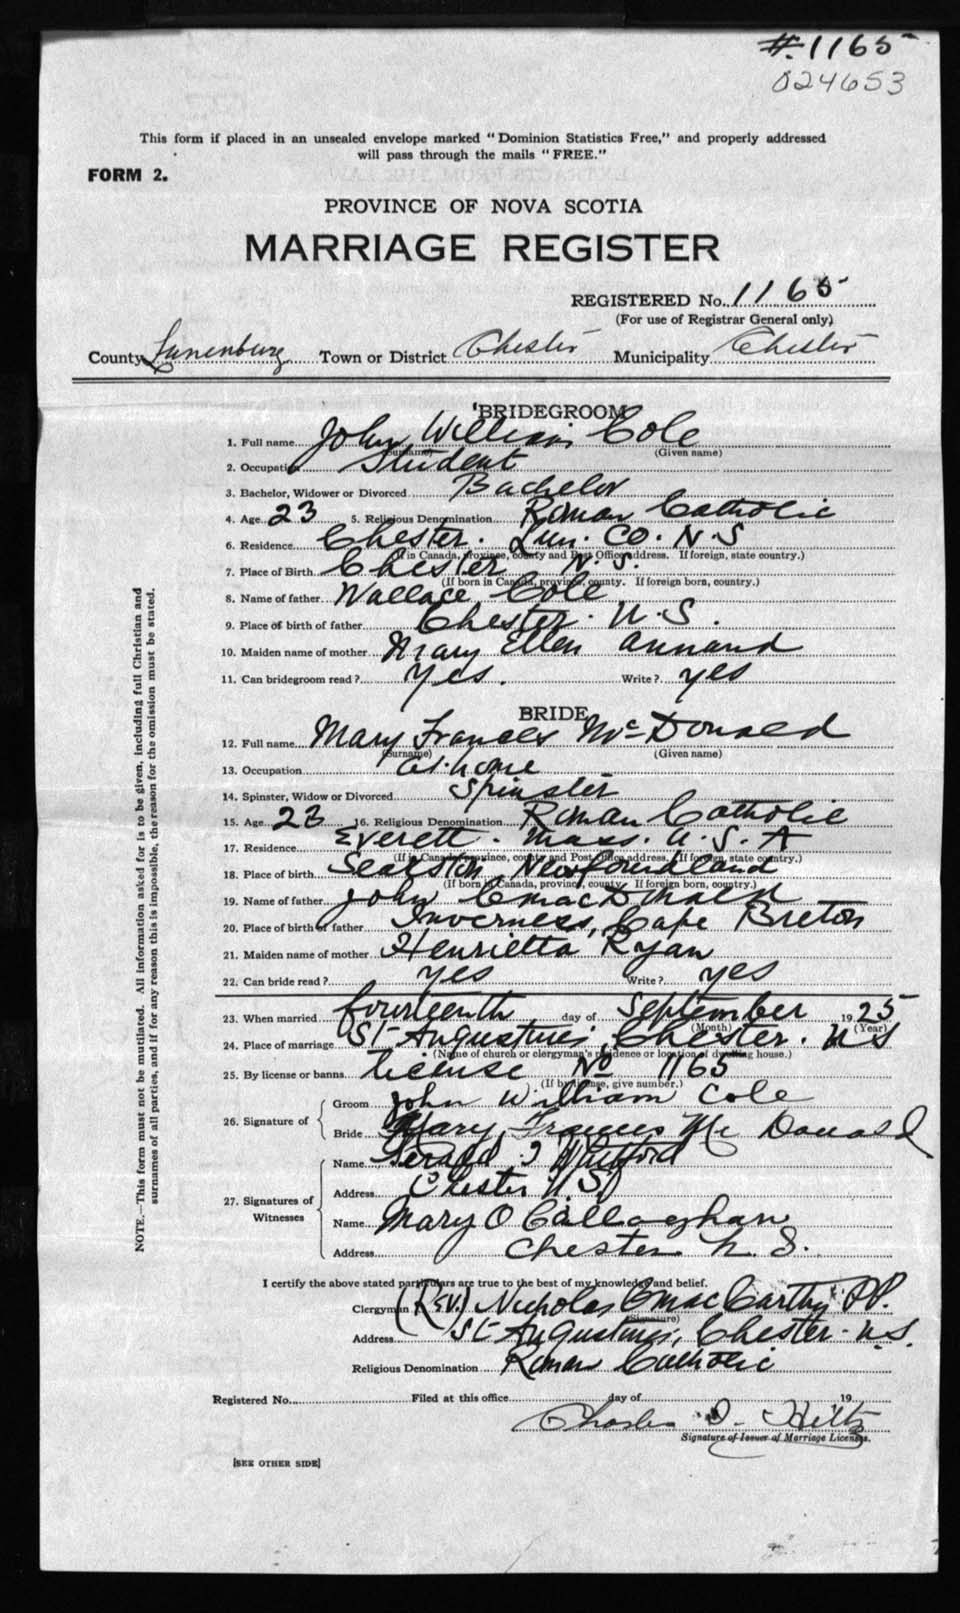 #.1165
024653
This form if placed in an unsealed envelope marked "Dominion Statistics Free," and properly addressed
will pass through the mails "FREE."
FORM 2.
PROVINCE OF NOVA SCOTIA
MARRIAGE REGISTER
REGISTERED No. 1165
(For use of Registrar General only)
County Lunenburg Town or District Chester Municipality Chester
BRIDEGROOM
1. Full name John William Cole
(Surname) (Given name)
2. Occupation Student
3. Bachelor, Widower or Divorced Bachelor
4. Age 23 5. Religious Denomination Roman Catholic
6. Residence Chester. Lun. Co. N.S
(If in Canada, province, county and Post Office address. If foreign, state country.)
7. Place of Birth Chester N.S.
(If born in Canada, province, county. If foreign born, country.)
8. Name of father Wallace Cole
9. Place of birth of father Chester. N.S.
10. Maiden name of mother Mary Ellen Annand
11. Can bridegroom read? Yes. Write? yes
BRIDE
12. Full name Mary Frances McDonald
(Surname) (Given name)
13. Occupation at home
14. Spinster, Widow or Divorced Spinster
15. Age 23 16. Religious Denomination Roman Catholic
17. Residence Everett. Mass. U.S.A
(If in Canada, province, county and Post Office address. If foreign, state country.)
18. Place of birth Newfoundland
(If born in Canada, province, county. If foreign born, country.)
19. Name of father John C MacDonald
20. Place of birth of father Inverness, Cape Breton
21. Maiden name of mother Henrietta Ryan
22. Can bride read? yes Write? yes
23. When married fourteenth day of September 1925
(Month) (Year)
24. Place of marriage St Augustines, Chester. N S
(Name of church or clergyman's residence or location of dwelling house.)
25. By license or banns License No 1165
(If by license, give number.)
26. Signature of Groom John William Cole
Bride Mary Frances Mc Donald
27. Signatures of Witnesses
Name Gerald
Address Chester N.S.
Name Mary O Callaghan
Address Chester N. S.
I certify the above stated particulars are true to the best of my knowledge and belief.
Clergyman (Rev.) Nicholas C MacCarthy P.P.
(Signature)
Address St Augustines, Chester. N.S.
Religious Denomination Roman Catholic
Registered No. Filed at this office day of 19
Charles D. Hiltz
Signature of Issuer of Marriage Licenses.
[SEE OTHER SIDE]
NOTE.—This form must not be mutilated. All information asked for is to be given, including full Christian and
surnames of all parties, and if for any reason this is impossible, the reason for the omission must be stated.